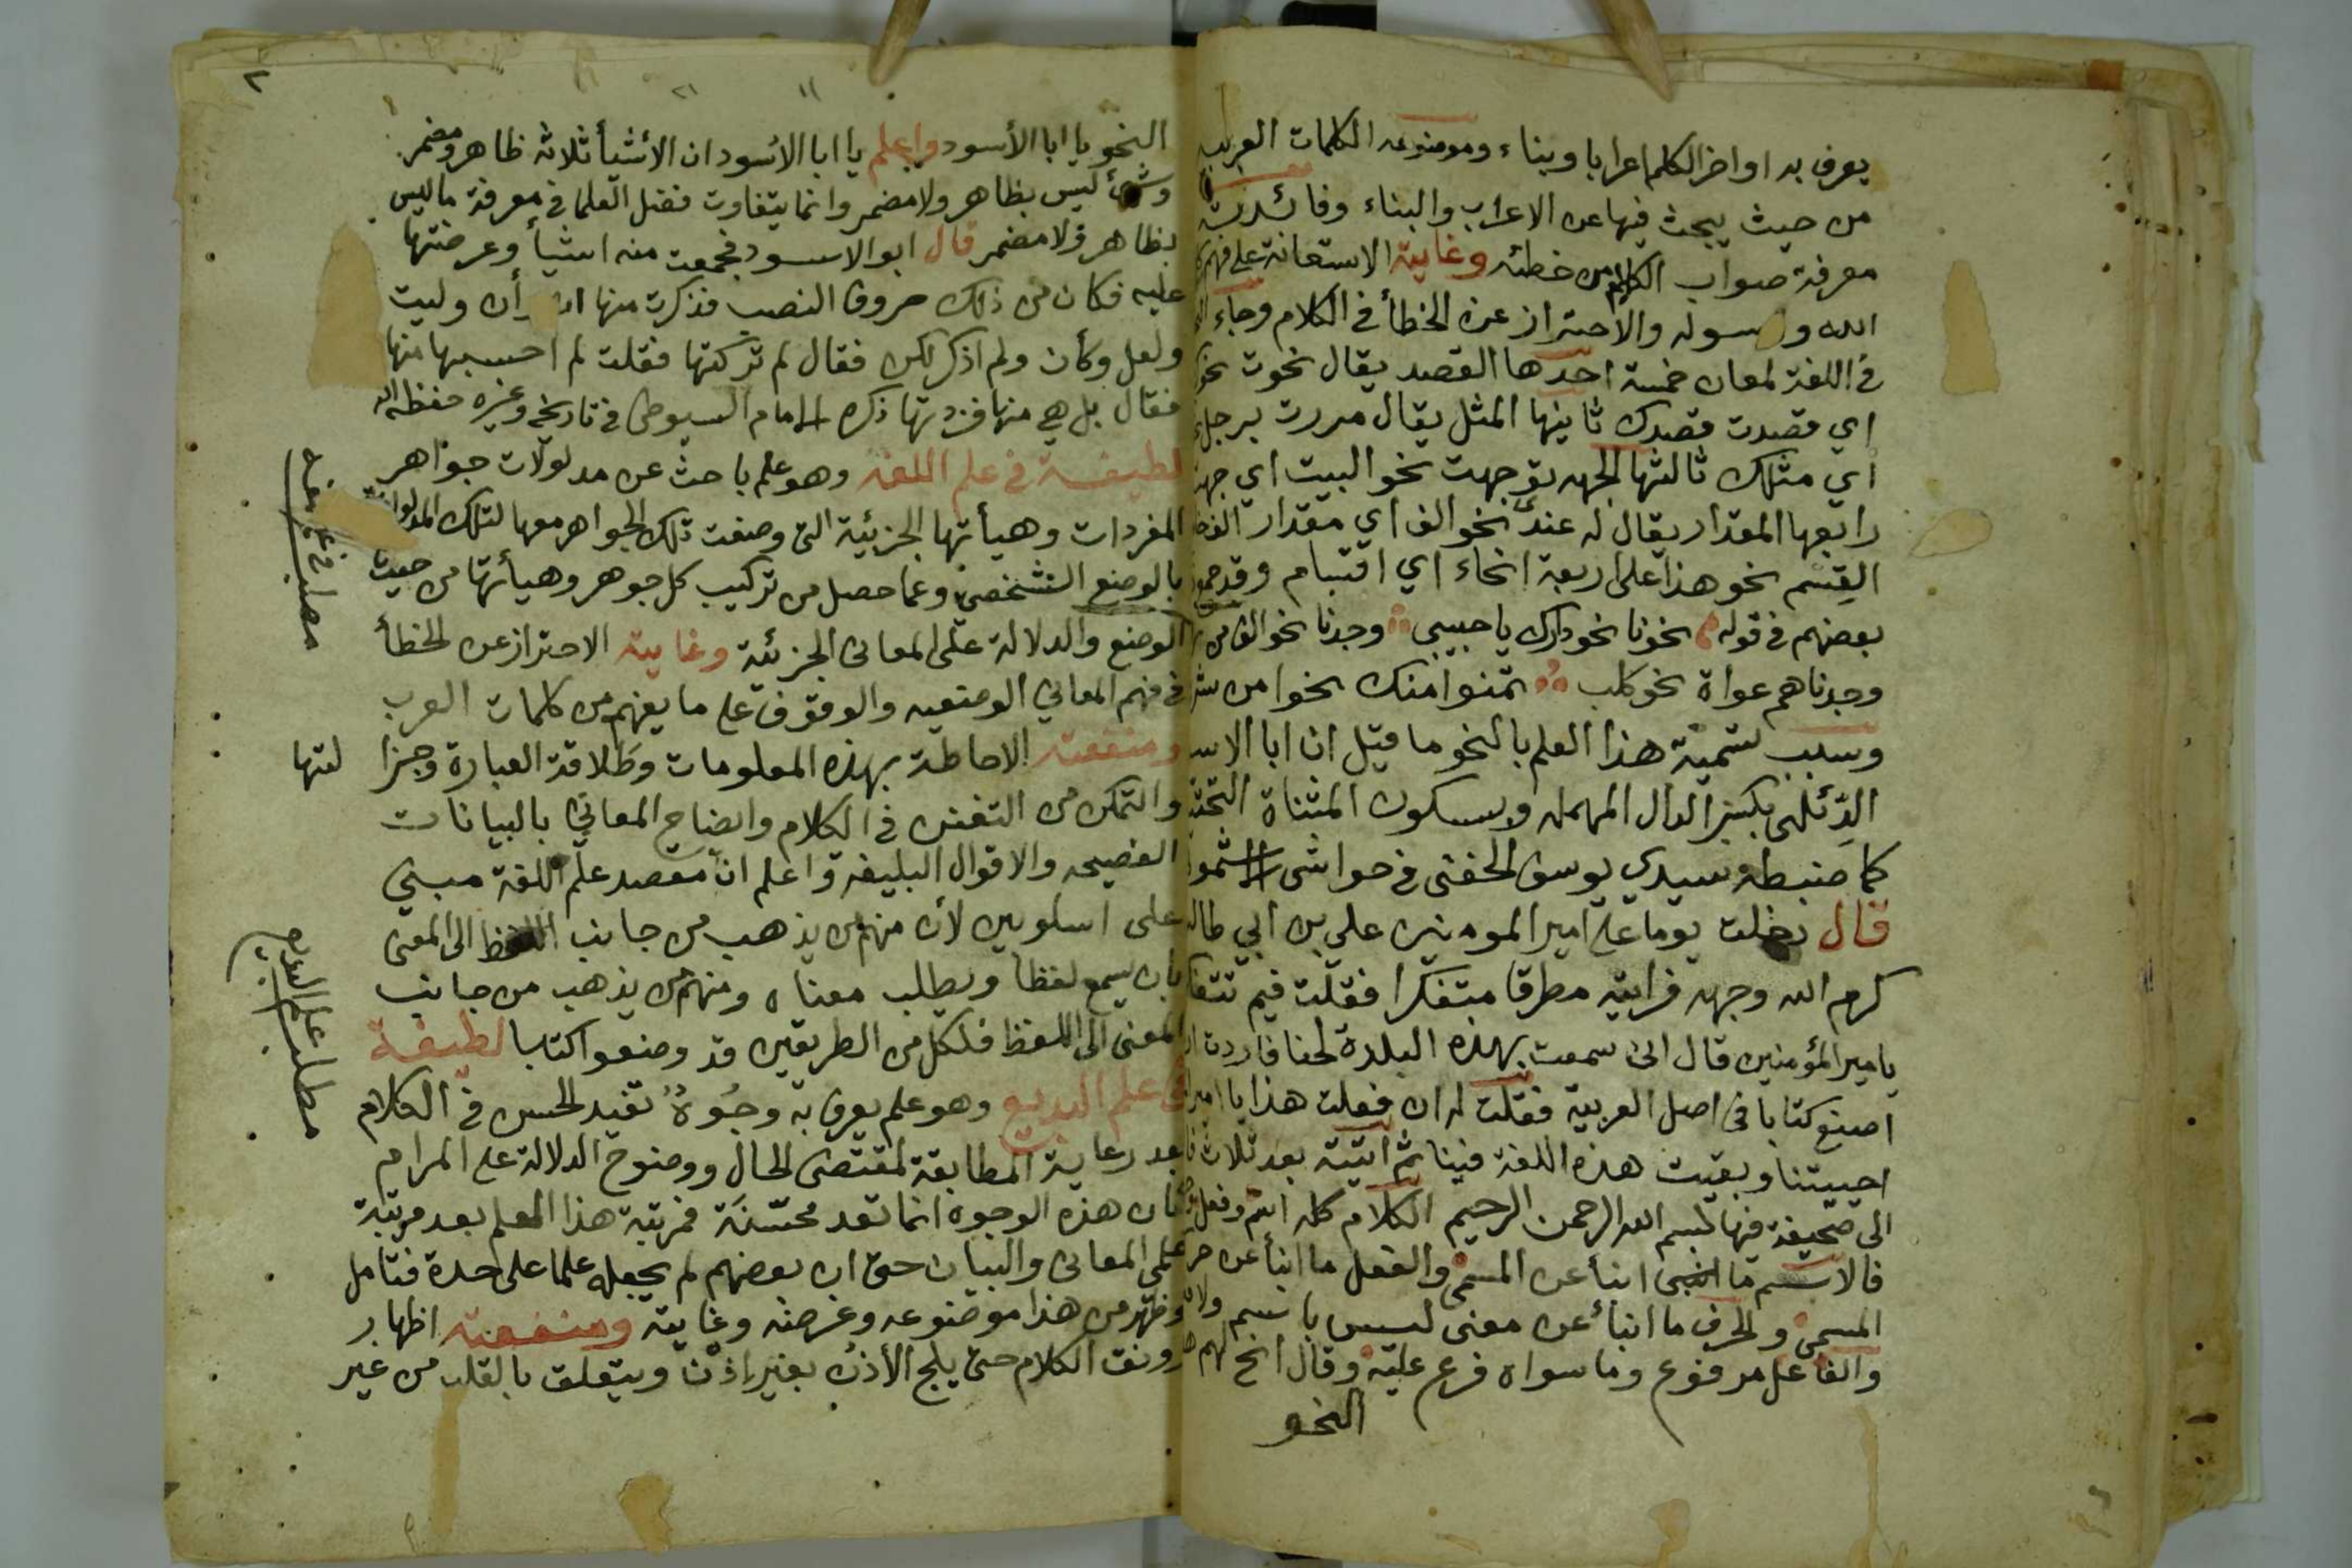 يعرف به اواخر الكلم اعرابا وبناء وموضوعه الكلمات العربيه
من حيث يبحث فيها عن الاعراب والبناء وفائدته
معرفة صواب الكلام من خطئه وغايته الاستعانة على فهم
الله و سوله والاحتراز عن الخطأ في الكلام وجاء
في اللغة لمعان خمسة احدها القصد يقال نحوت نحو
اي قصدت قصدك ثانيها المثل يقال مررت برجل
أي مثلك ثالثها الجهه توجهت نحو البيت اي جهة
رابعها المقدار يقال له عندي نحو الف اي مقدار الف
القِسْم نحو هذا على اربعة انحاء اي اقسام وقد جمع
بعضهم في قوله نحونا نحو دارك يا حبيبي وجدنا نحو الف من
وجدناهم عواة نحو كلب تمنوا منك نحوا من
وسبب تسمية هذا العلم بالنحو ما قيل ان ابا الاسو
الدِّئلى بكسر الدال المهمله وبسكون المثناة التحتية
كما ضبطه سيدي يوسف الحفنى في حواشى الاشمونى
قال دخلت يوما على امير المومنين علي بن ابي طالب
كرم الله وجهه فرايته مطرقا متفكرا فقلت فيم تتفكر
يامير المؤمنين قال انى سمعت بهذه البلدة لحنا فاردت ان
اصنع كتابا في اصل العربية فقلت له ان فعلت هذا يا امير
احييتنا وبقيت هذه اللغة فينا ثم اتيته بعد ثلاث
الى صحيفة فيها بسم الله الرحمن الرحيم الكلام كله اسم وفعل
فالاسم ما انبأ عن المسمى والفعل ما انبأ عن
المسمى والحرف ما انبأ عن معنى ليس باسم ولا
والفاعل مرفوع وما سواه فرع عليه وقال انح لهم
النحو
٢
النحو يا ابا الأسود واعلم يا ابا الاسود ان الأشيأ ثلاثه ظاهر ومضمر
وشئ ليس بظاهر ولا مضمر وانما يتفاوت فضل العلما في معرفة ما ليس
بظاهر ولا مضمر قال ابو الاسود فجمعت منه اشيأ وعرضتها
عليه فكان من ذلك حروف النصب فذكرت منها ان أن وليت
ولعل وكأن ولم اذكر لكن فقال لم تركتها فقلت لم احسبها منها
فقال بل هي منها فزدتها ذكره الامام السيوطى في تاريخه وغيره حفظه الله
لطيفة في علم اللغة وهو علم باحث عن مدلولات جواهر
المفردات وهيأتها الجزئية التى وضعت تلك الجواهر معها لتلك المدلولات
بالوضع الشخصي وعما حصل من تركيب كل جوهر وهيأتها من حيث
الوضع والدلالة على المعانى الجزئية وغايته الاحتراز عن الخطأ
في فهم المعاني الوضعيه والوقوف على ما يفهم من كلمات العرب
ومنفعته الاحاطة بهذه المعلومات وطلاقة العبارة وجزا
لتها
والتمكن من التفنن في الكلام وايضاح المعاني بالبيانات
الفصيحه والاقوال البليغه واعلم ان مقصد علم اللغة مبني
على اسلوبين لأن منهم من يذهب من جانب اللفظ الى المعنى
بان يسمع لفظا ويطلب معناه ومنهم من يذهب من جانب
المعنى الى اللفظ فلكل من الطريقين قد وضعوا كتبا لطيفة
في علم البديع وهو علم يعرف به وجُوهٌ تفيد الحسن في الكلام
بعد رعاية المطابقة لمقتضى الحال ووضوح الدلالة على المرام
فان هذه الوجوه انما تعد محسّنَة فمرتبة هذا العلم بعد مرتبة
علمي المعانى والبيان حتى ان بعضهم لم يجعله علما على حدة فتامل
وظهر من هذا موضوعه وغرضه وغايته ومنفعته اظهار
رونق الكلام حتى يلج الأذن بغير إذن ويتعلق بالقلب من غير
مطلب في علم اللغه
مطلب علم البديع